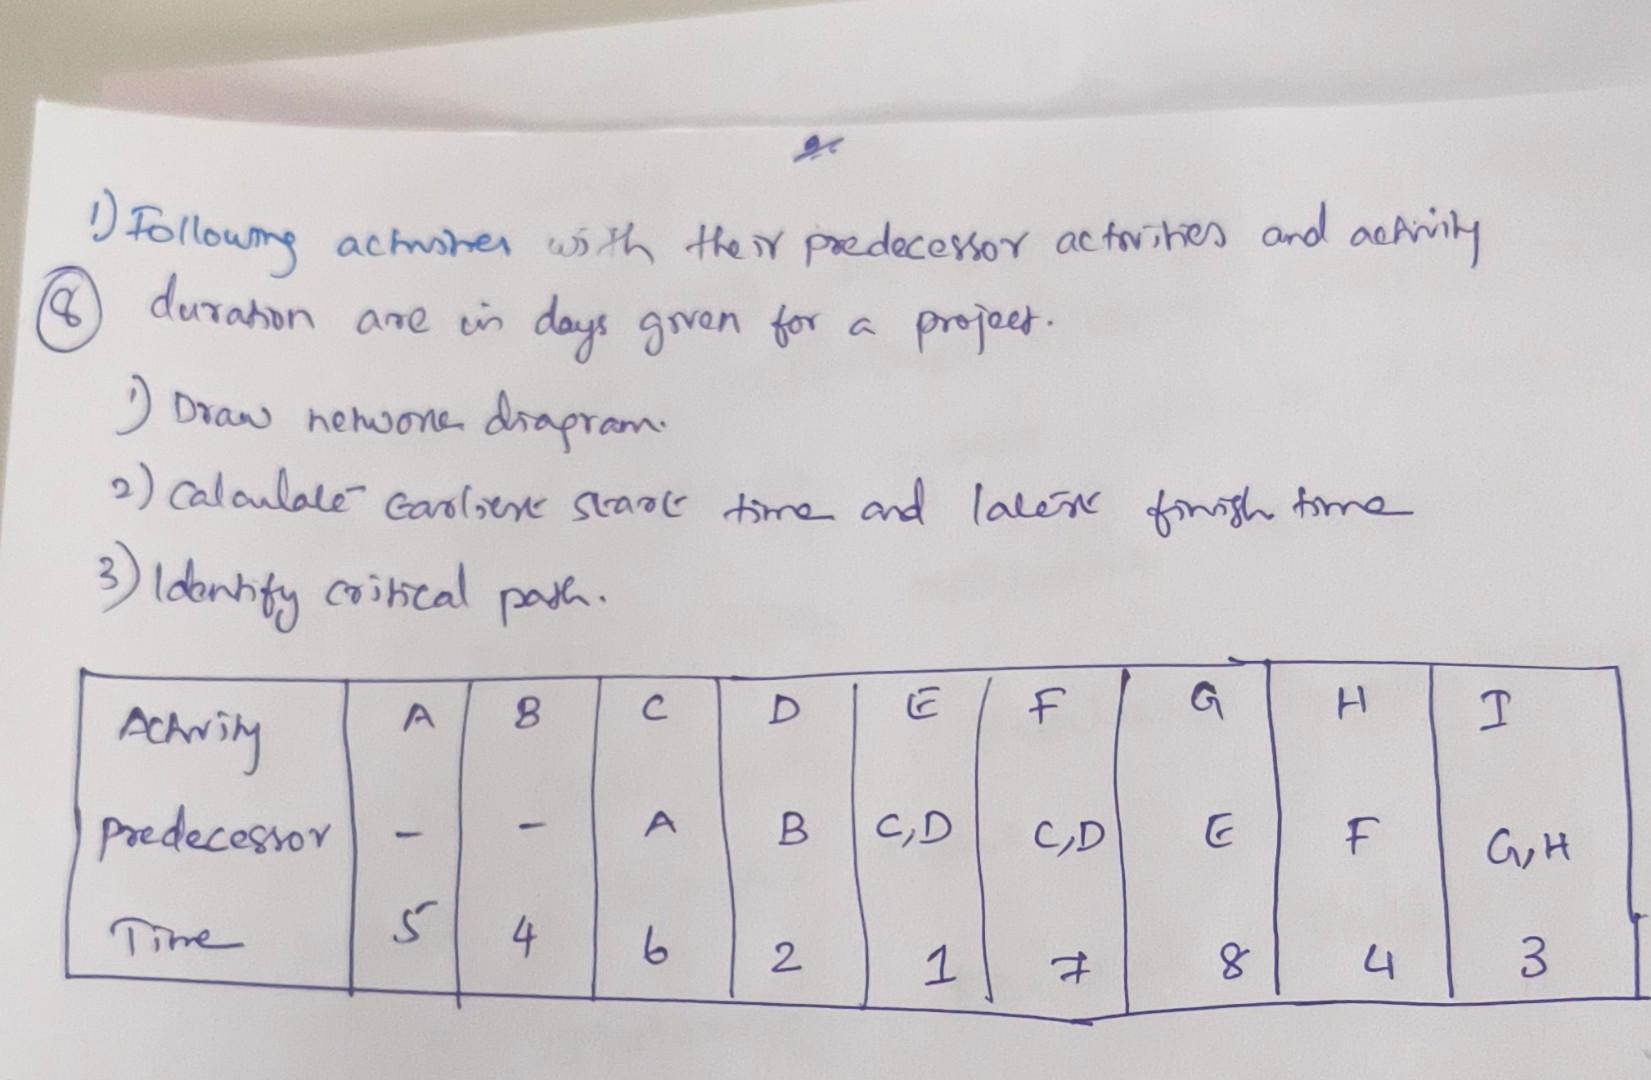 1) Following activities with their predecessor activities and activity
8 duration are in days given for a project.
1) Draw network diagram.
2) Calculate Earliest start time and latest finish time
3) Identify critical path.
Activity A B C D E F G H I
Predecessor - - A B C,D C,D E F G,H
Time 5 4 6 2 1 7 8 4 3